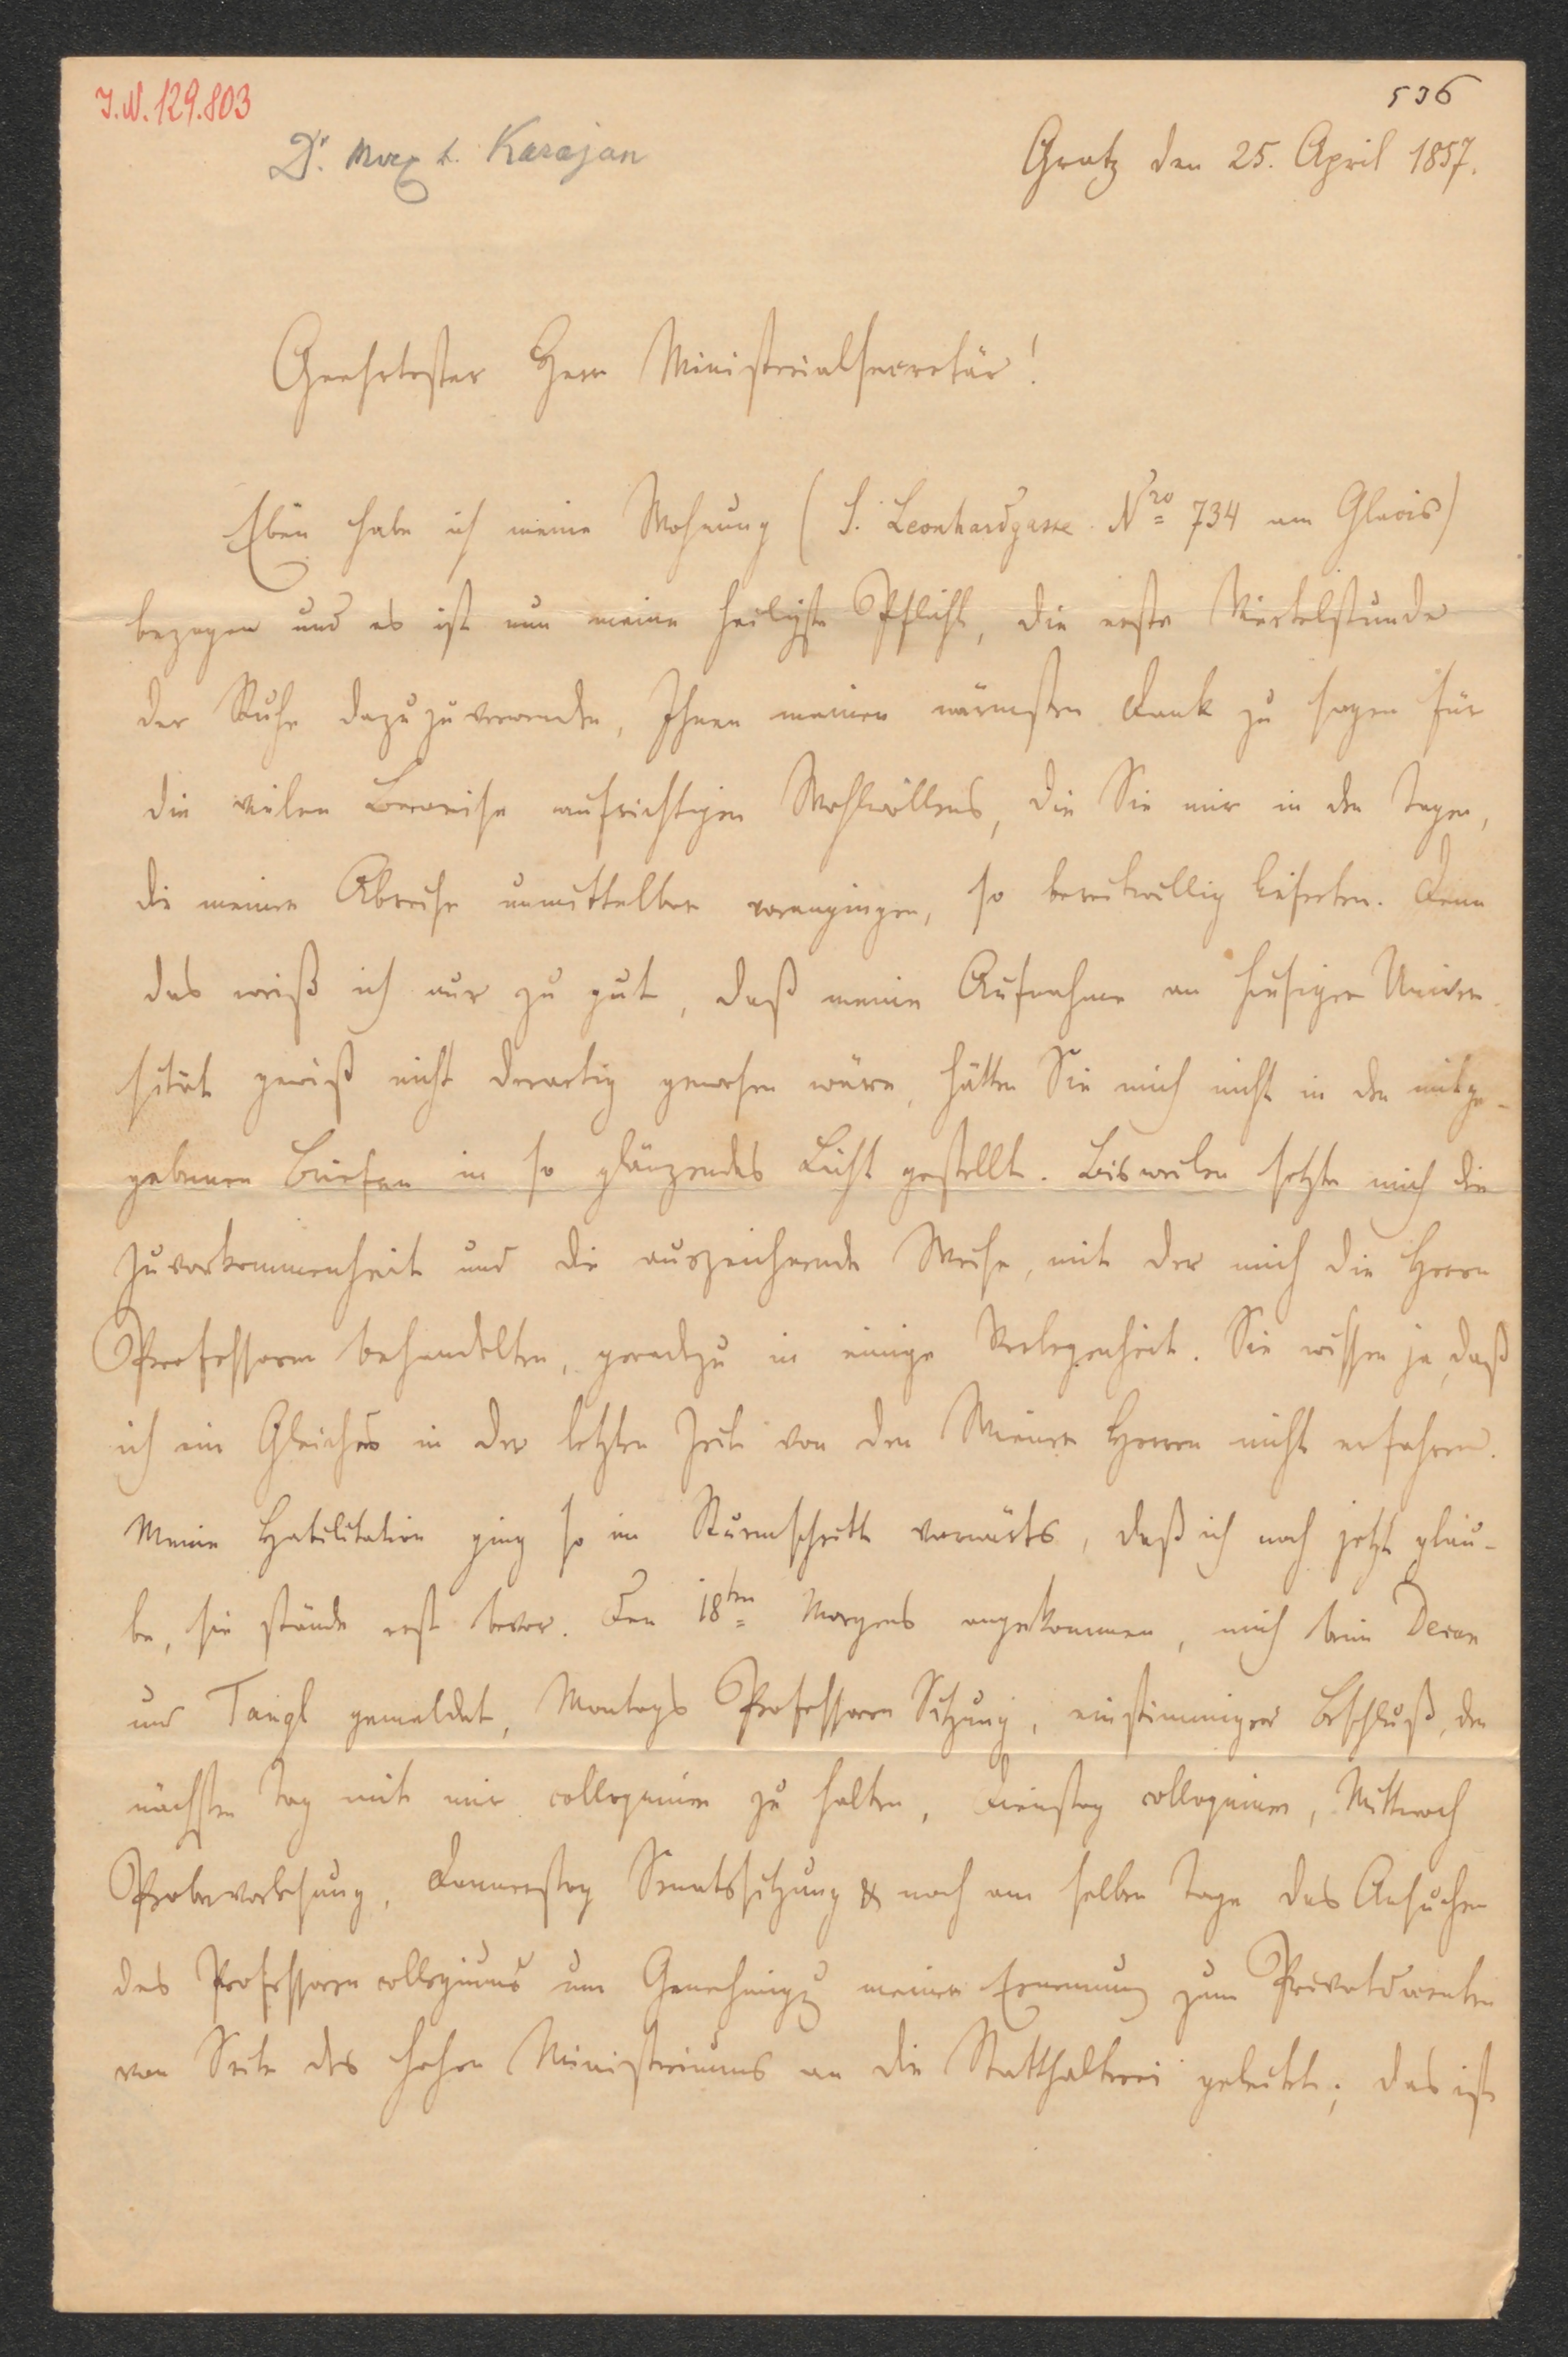 I.N. 129.803
536
Dr. Max v. Karajan
Gratz den 25. April 1857.
Geehrtester Herr Ministerialsecretär!
Eben habe ich meine Wohnung (S. Leonhardgasse Nro 734 am Glacis)
bezogen und es ist nun meine heiligste Pflicht, die erste Viertelstunde
der Ruhe dazu zu verwenden, Ihnen meinen wärmsten Dank zu sagen für
die vielen Beweise aufrichtigen Wohlwollens, die Sie mir in den Tagen,
die meiner Abreise unmittelbar vorangingen, so bereitwillig lieferten. Denn
das weiß ich nur zu gut, daß meine Aufnahme an hiesiger Univer-
sität gewiß nicht derartig gewesen wäre, hätten Sie mich nicht in den mitge-
gebenen Briefen in so glänzendes Licht gestellt. Bisweilen setzte mich die
Zuvorkommenheit und die auszeichnende Weise, mit der mich die Herrn
Professoren behandelten, geradezu in einige Verlegenheit. Sie wissen ja, daß
ich ein Gleiches in der letzten Zeit von den Wiener Herren nicht erfahren.
Meine Habilitation ging so im Sturmschritt vorwärts, daß ich noch jetzt glau-
be, sie stände erst bevor. Den 18ten Morgens angekommen, mich beim Decan
und Tangl gemeldet, Montags Professoren Sitzung, einstimmiger Beschluß, den
nächsten Tag mit mir colloquium zu halten, Dienstag colloquium, Mittwoch
Probevorlesung, Donnerstag Senatssitzung & noch am selben Tage das Ansuchen
des Professorencollegiums um Genehmigung meiner Ernennung zum Privatdocenten
von Seite des hohen Ministeriums an die Statthalterei geleitet; das ist